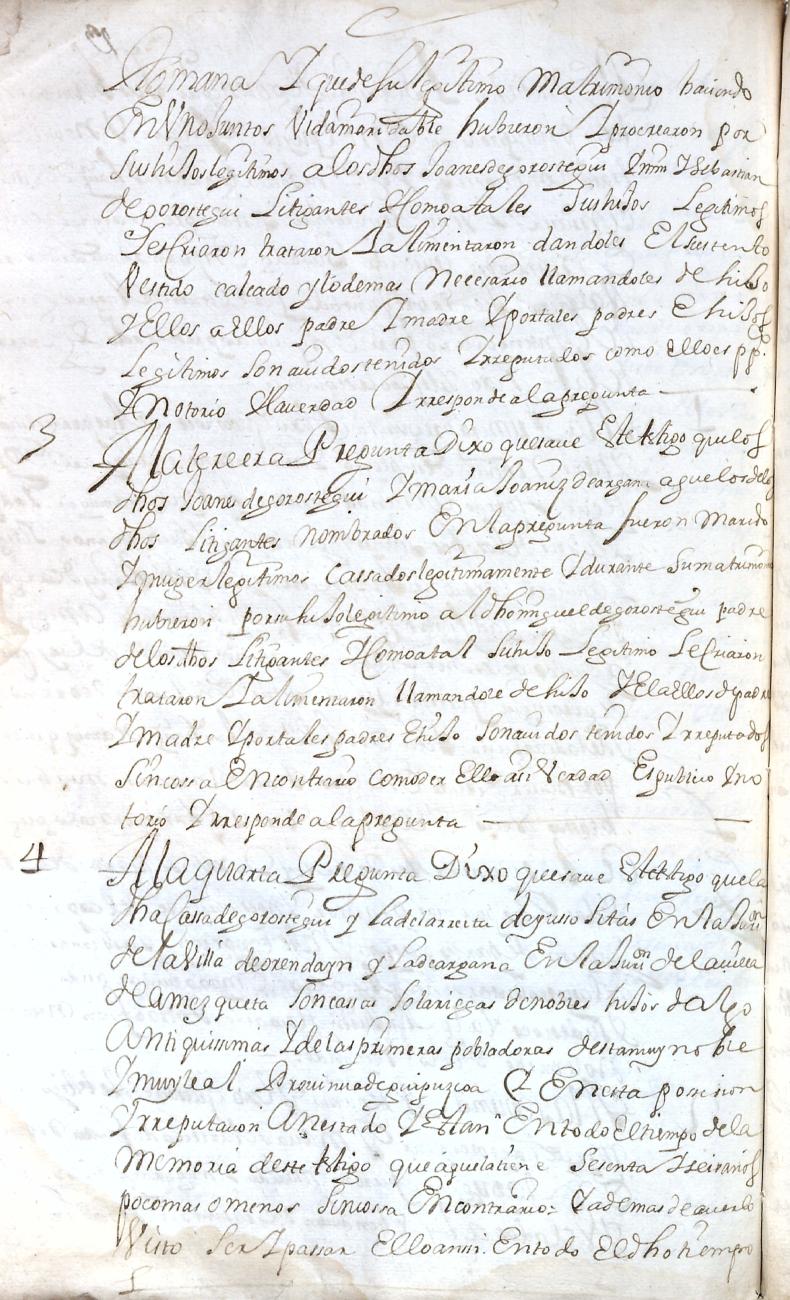 Romana Y que de su legitimo Matrimonio haciendo
En Uno Juntos Vida maridable hubieron Y procrearon por
sus hijos legitimos a los dhos Joanes de gorostegui Y Sebastian
de gorostegui Litigantes Y Como a tales sus hijos Legitimos
les Criaron trataron Y alimentaron dandoles El sustento
Vestido calçado y lo demas Necesario llamandoles de hijo
y Ellos a Ellos padre Y madre Y por tales padres E hijos
Legitimos son auidos tenidos Y rreputados como Ello es ppco
Y Notorio Y la verdad Y rresponde a la pregunta
3 A la tercera Pregunta Dixo que saue Este testigo que los
dhos Joanes de gorostegui Y maria Joaniz de argana aguelos de los
dhos Litigantes nombrados En la pregunta fueron Marido
Y muger legitimos Cassados legitimamente Y durante su matrimonio
hubieron por su hijo legitimo al dho miguel de gorostegui padre
de los dhos Litigantes Y Como a tal su hijo Legitimo le Criaron
trataron Y alimentaron llamandole de hijo Y El a Ellos de padre
Y madre Y por tales padres E hijo son auidos tenidos Y rreputados
sin cossa En contrario como de Ello assi Verdad Es publico Y no
torio Y rresponde a la pregunta
4 A la quarta Pregunta Dixo que saue Este testigo que la
dha Cassa de gorostegui y la de larreita de yusso sitas En la Jurion
de la Villa de orendayn y la de argana En la Jurion de la villa
de amezqueta son cassas solariegas de nobles hijos de algo
Antiquissimas Y de las primeras pobladoras desta muy noble
Y muy leal Prouincia de guipuzcoa Y En esta posesion
Y rreputacion An estado Y Estan En todo El tiempo de la
Memoria deste testigo que aquella tiene sesenta Y seis años
poco mas o menos sin cossa En contrario Y ademas de auerlo
Visto ser Y passar Ello anssi En todo El dho tiempo